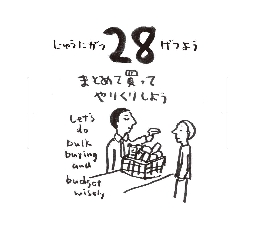 じゅうにがつ 28 げつよう
まとめて買って
やりくりしよう
Let's
do
bulk
buying
and
budget
wisely